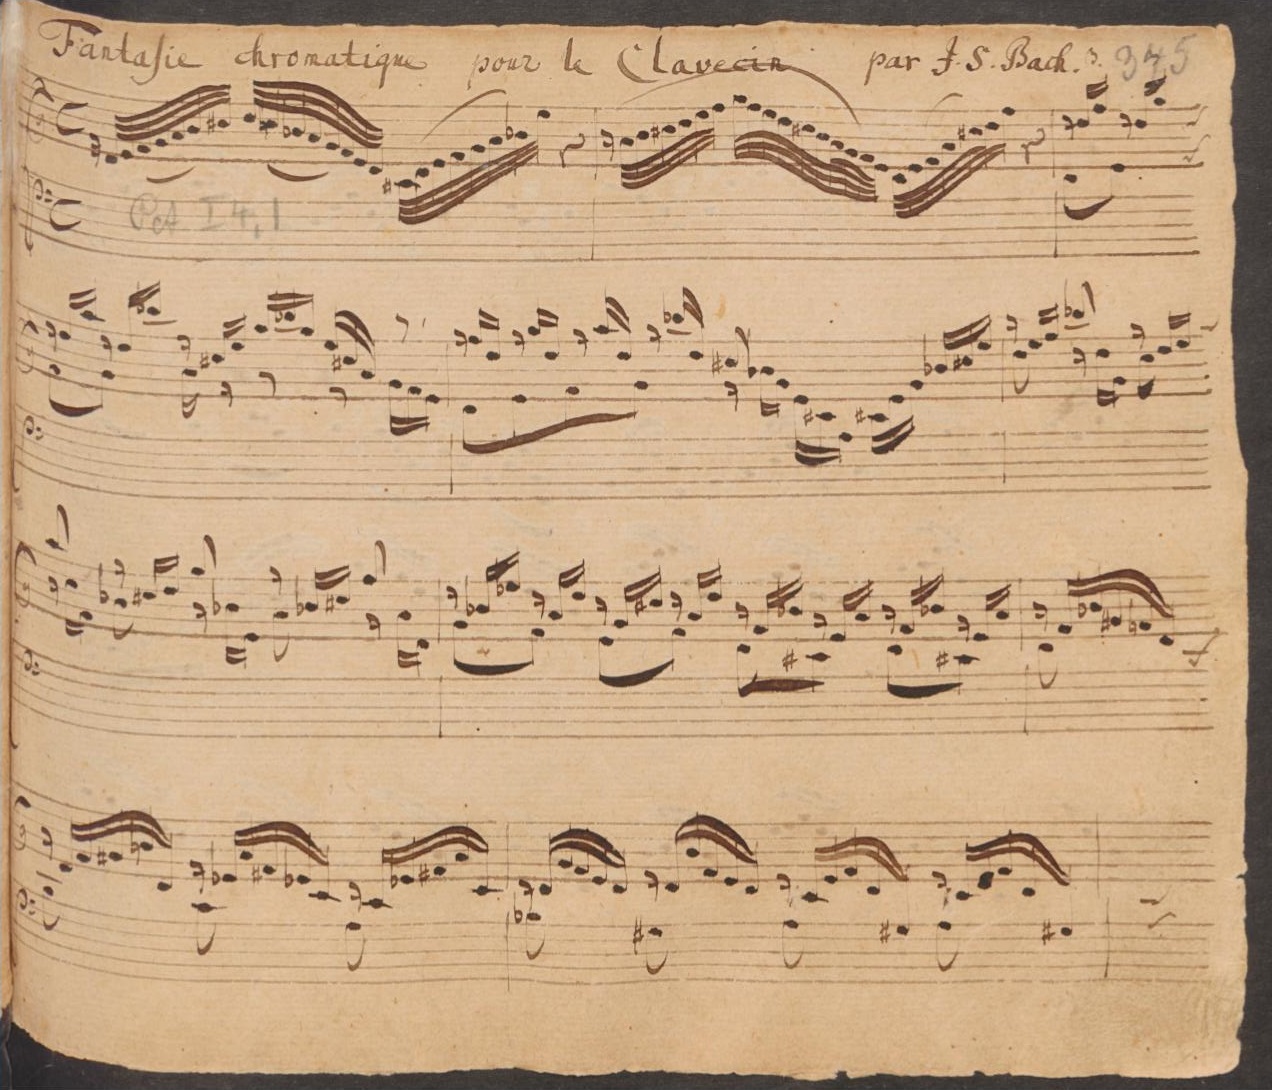 Fantasie chromatique pour le Clavecin par J. S. Bach. 345
Pet I 4,1